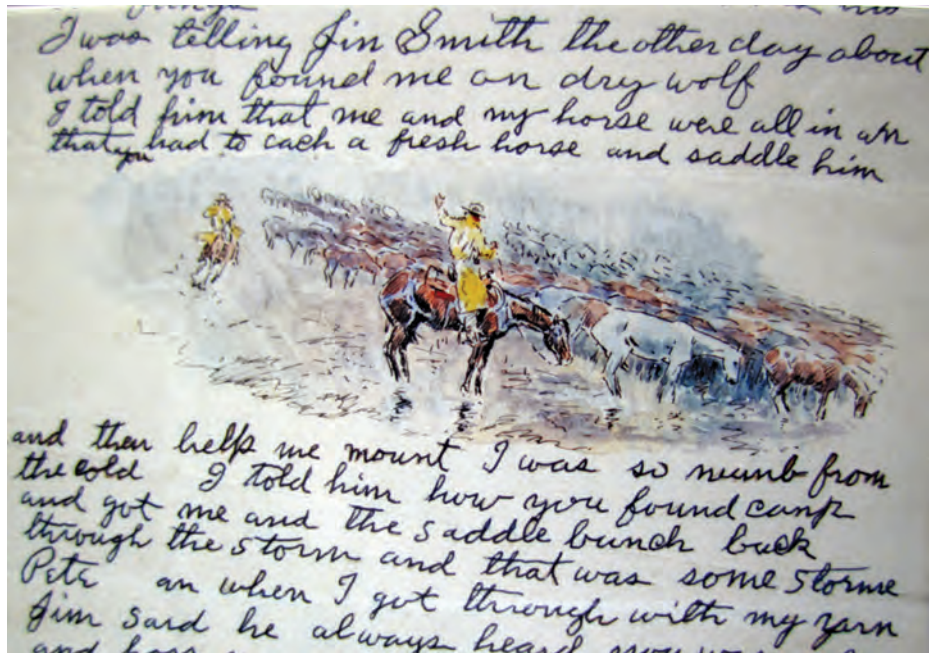 I was telling Jim Smith the other day about
when you found me on dry wolf
I told him that me and my horse were all in an
that you had to cach a fresh horse and saddle him
and then help me mount I was so numb from
the cold I told him how you found camp
and got me and the saddle bunch back
through the storm and that was some storme
Pete an when I got through with my yarn
Jim said he always heard you was
and